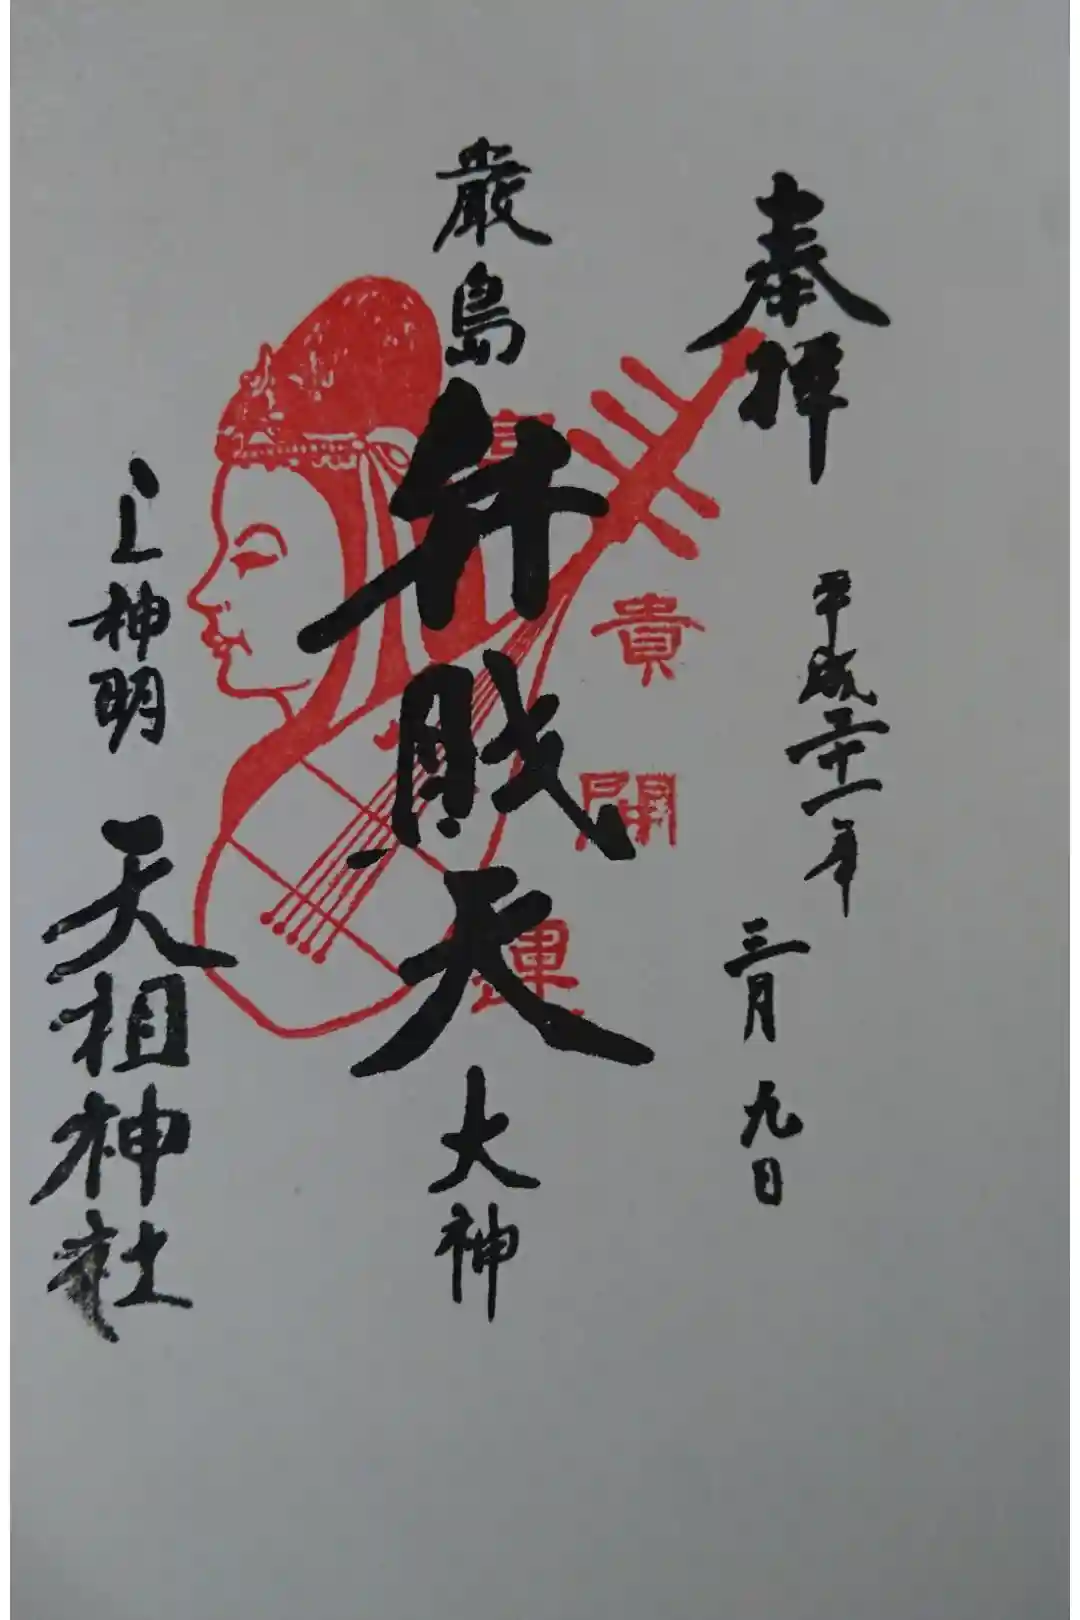 奉拝
平成二十一年 三月 九日
富貴開運
厳島弁財天大神
上神明 天祖神社